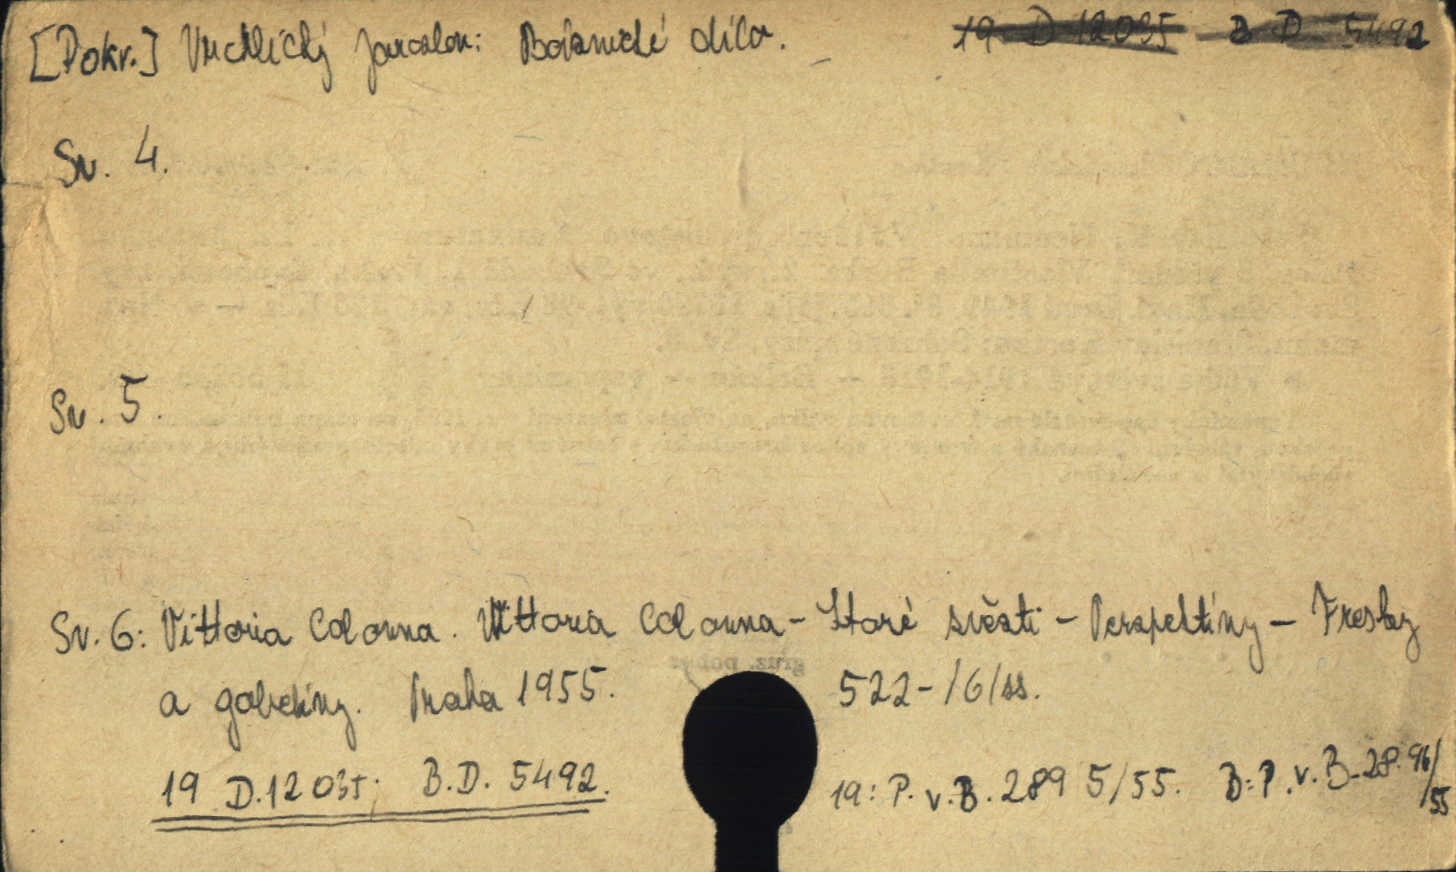 [Pokr.] Vrchlický Jaroslav: Básnické dílo. 19 D 12035 B D. 5492
Sv. 4.
Sv. 5.
Sv. 6: Vittoria Colonna. Vittoria Colonna - Staré zvěsti - Perspektivy - Fresky
a gobeliny. Praha 1955. 522-/6/ss.
19 D.12035; B.D. 5492. 19: P. v. B. 289 5/55. B: P. v. B. 28 96/55